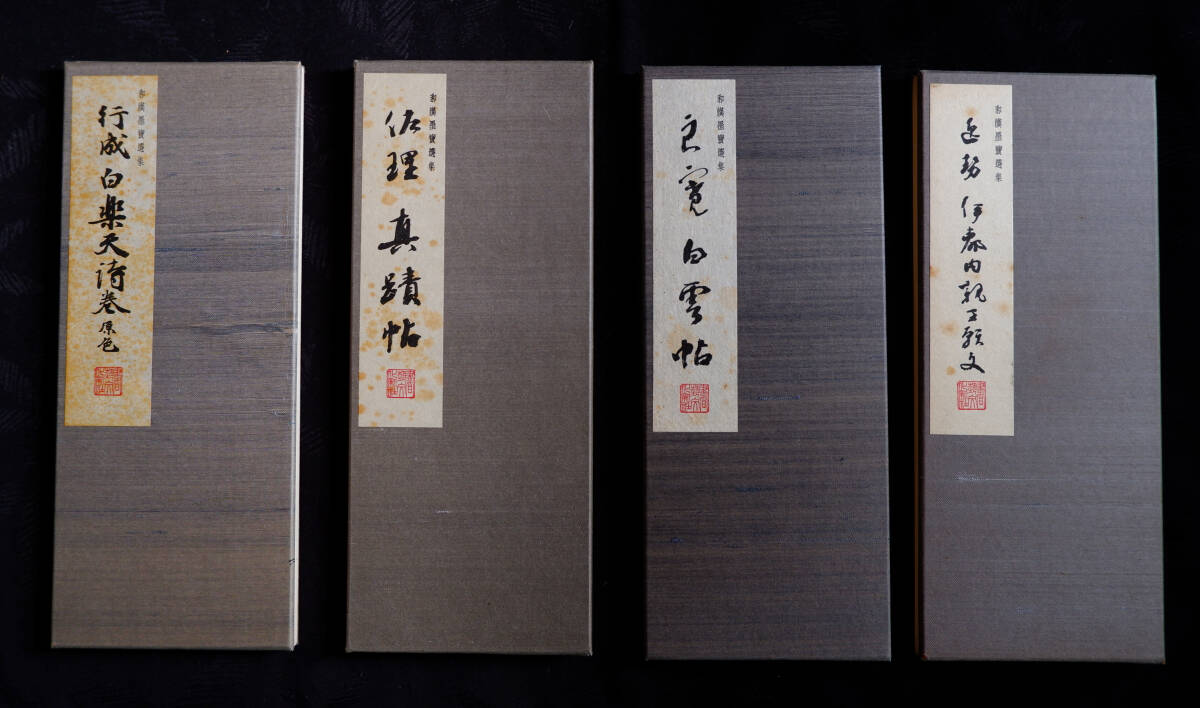 和漢墨寶選集
行成 白楽天詩巻 原色
和漢墨寶選集
佐理 真蹟帖
和漢墨寶選集
良寛 白雲帖
和漢墨寶選集
逸勢 伊都内親王願文